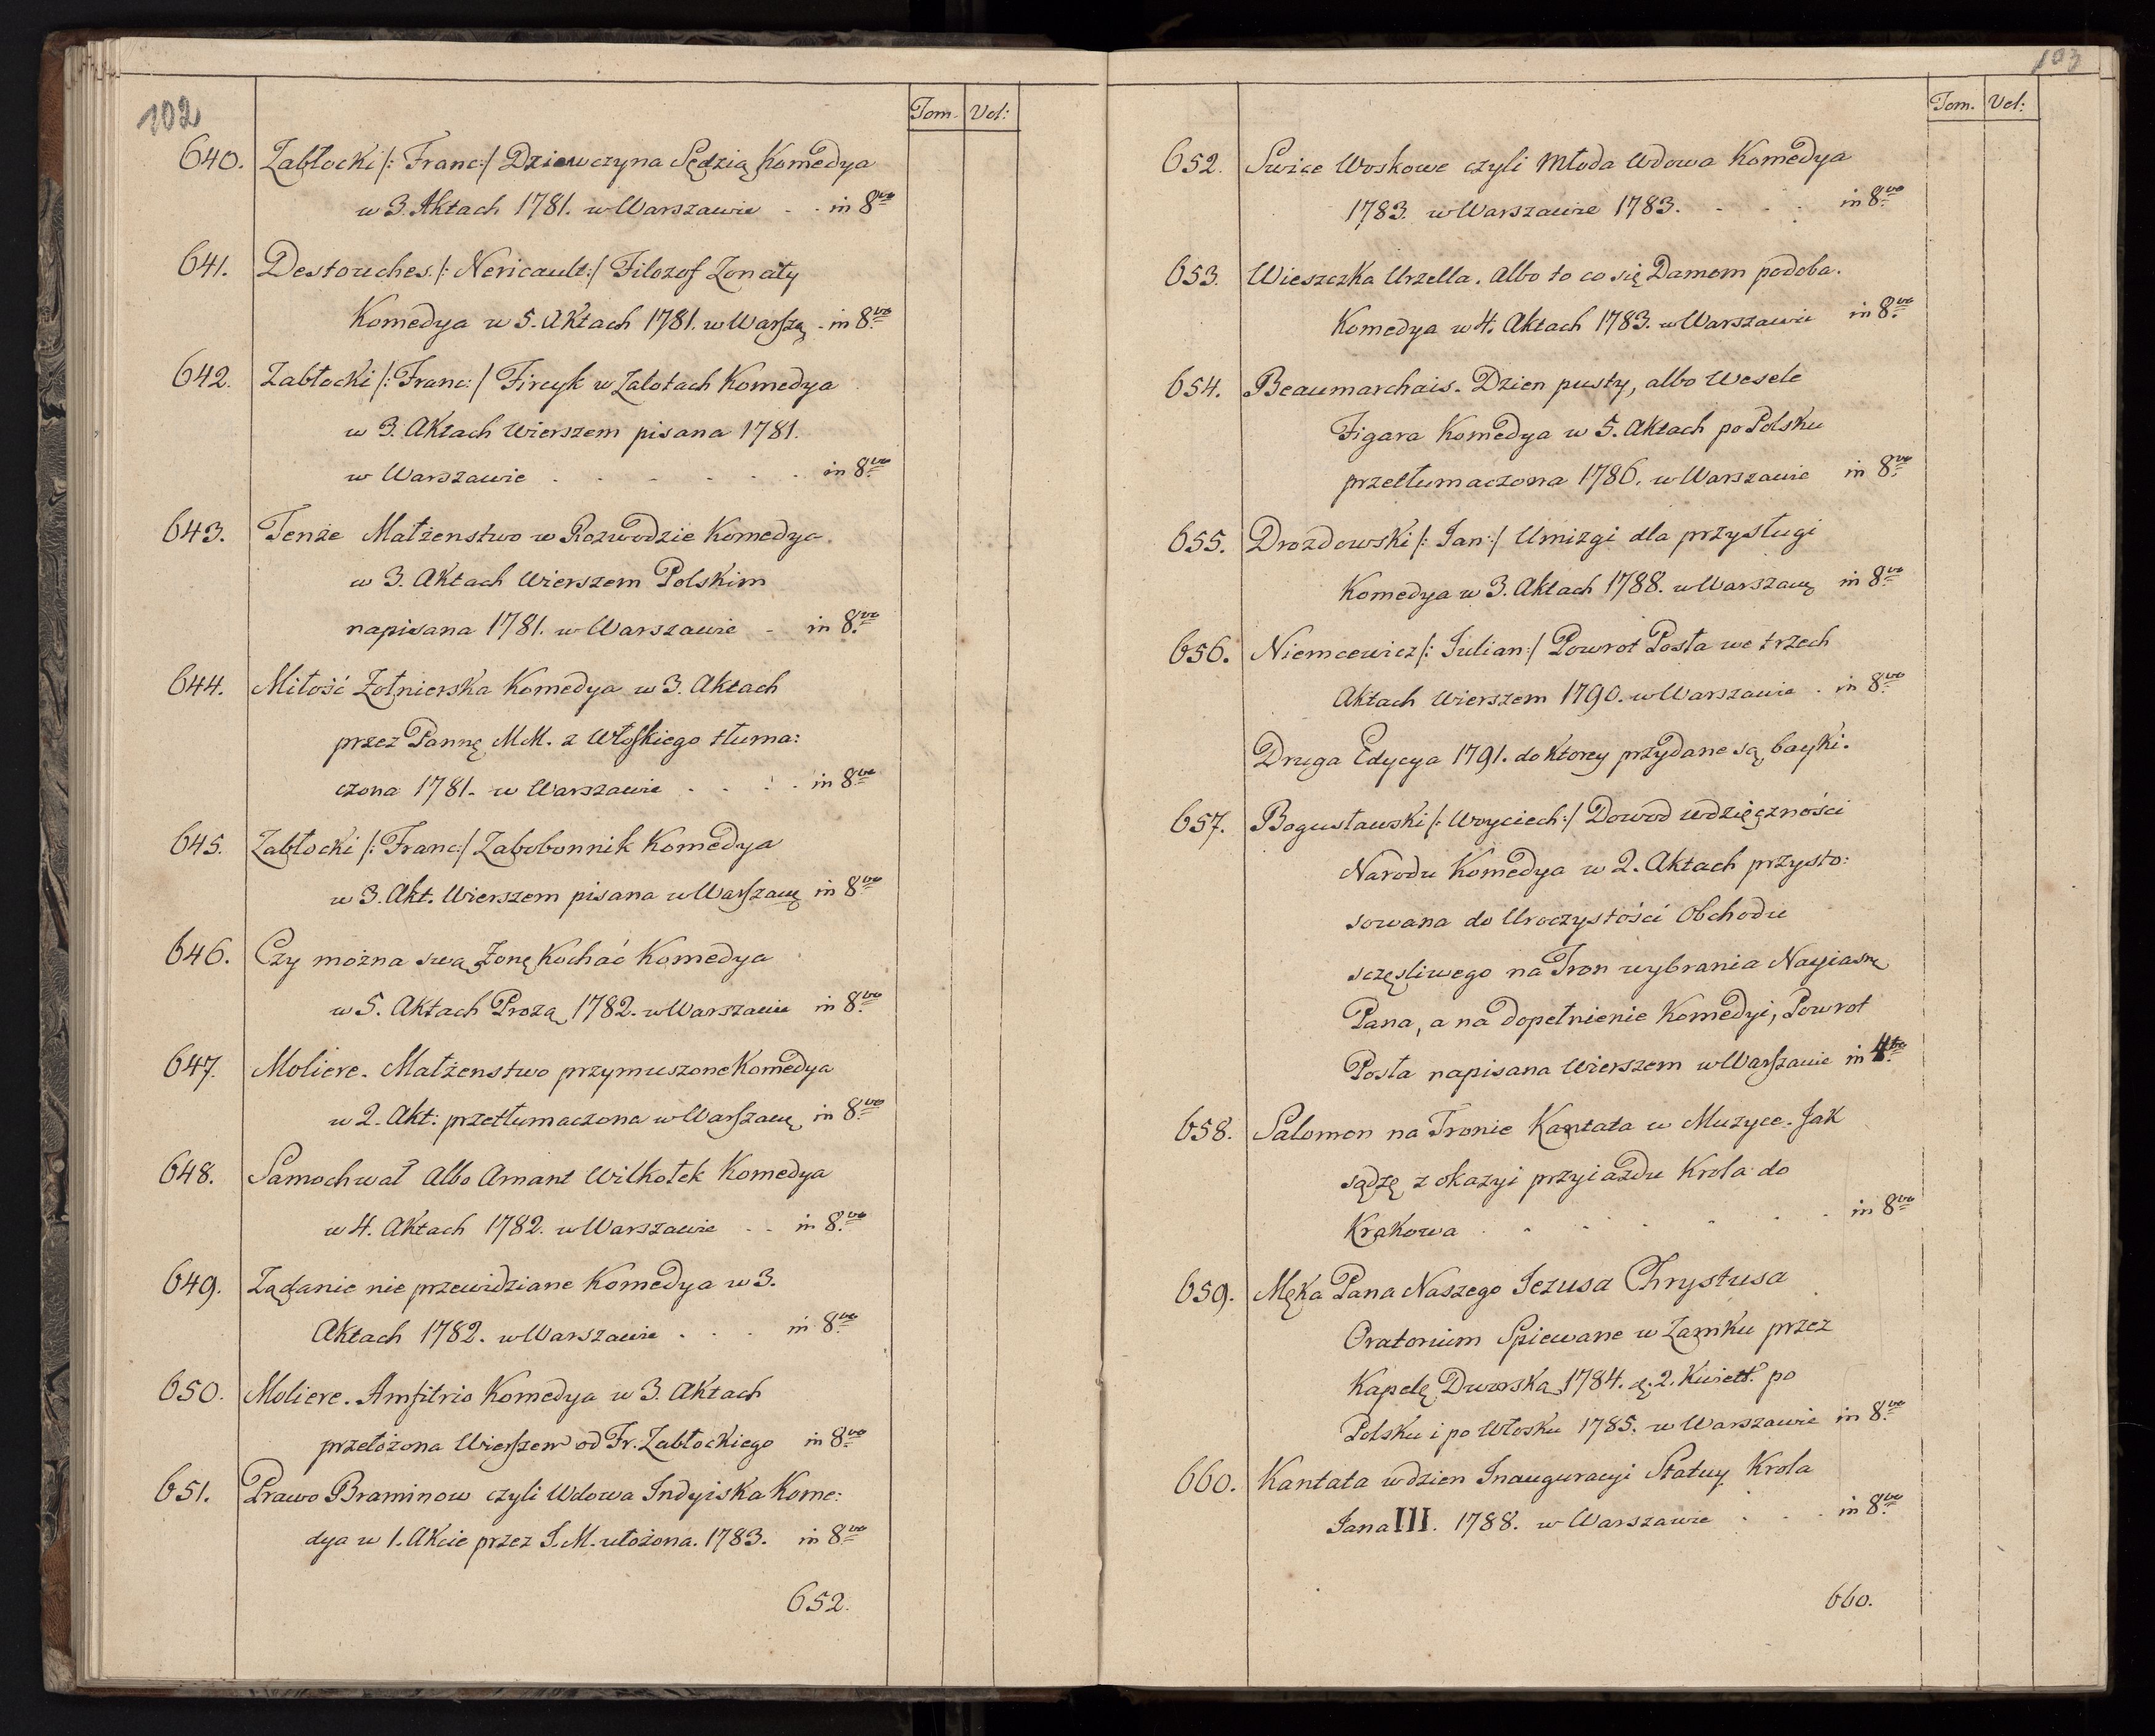 102
Tom. Vol:
640. Zabłocki /: Franc:/ Dziewczyna Sędzią Komedya
w 3. Aktach 1781. w Warszawie . . in 8.vo
641. Destouches. /: Nericault:/ Filozof Zonaty
Komedya w 5. Aktach 1781. w Warszą . in 8.vo
642. Zabłocki /: Franc:/ Fircyk w Zalotach Komedya
w 3. Aktach Wierszem pisana 1781.
w Warszawie . . . . . . in 8.vo
643. Tenże Małżenstwo w Rozwodzie Komedya.
w 3. Aktach Wierszem Polskim
napisana 1781. w Warszawie - in 8.vo
644. Miłość Żołnierska Komedya w 3. Aktach
przez Pannę MM. z Włoskiego tłuma:
czona 1781. w Warszawie . . . . in 8.vo
645. Zabłocki /: Franc:/ Zabobonnik Komedya
w 3. Akt. Wierszem pisana w Warszawę in 8.vo
646. Czy można swą Żonę Kochać Komedya
w 5. Aktach Prozą 1782. w Warszawie in 8.vo
647. Moliere. Małżenstwo przymuszone Komedya
w 2. Akt: przetłumaczona w Warszawę in 8.vo
648. Samochwał Albo Amant Wilkołek Komedya
w 4. Aktach 1782. w Warszawie . . in 8.vo
649. Żądanie nie przewidziane Komedya w 3.
Aktach 1782. w Warszawie . . . in 8.vo
650. Moliere. Amfitrio Komedya w 3. Aktach
przełożona Wierszem od Fr. Zabłockiego in 8.vo
651. Prawo Braminow czyli Wdowa Indyiska Kome:
dya w 1. Akcie przez J. M. ułożona. 1783. in 8.vo
652.
103
Tom. Vol:
652. Swice Woskowe czyli Młoda Wdowa Komedya
1783. w Warszawie 1783. . . . in 8.vo
653. Wieszczka Urzella. Albo to co się Damom podoba.
Komedya w 4. Aktach 1783. w Warszawie in 8.vo
654. Beaumarchais. Dzien pusty, albo Wesele
Figara Komedya w 5. Aktach po Polsku
przetłumaczona 1786. w Warszawie in 8.vo
655. Drozdowski /: Jan:/ Umizgi dla przysługi
Komedya w 3. Aktach 1788. w Warszawę in 8.vo
656. Niemcewicz /: Julian:/ Powrot Posła we trzech
Aktach Wierszem 1790. w Warszawie . in 8.vo
Druga Edycya 1791. do Ktorey przydane są bayki.
657. Bogusławski /: Woyciech:/ Dowod wdzięczności
Narodu Komedya w 2. Aktach przysto:
sowana do Uroczystości Obchodu
sczęsliwego na Tron wybrania Nayiasnę
Pana, a na dopełnienie Komedyi, Powrot
Posła napisana Wierszem w Warszawie in 4.to
658. Salomon na Tronie Kantata w Muzyce. Jak
sądzę z okazyi przyiazdu Krola do
Krakowa . . . . . . in 8.vo
659. Męka Pana Naszego Jezusa Chrystusa
Oratorium Spiewane w Zamku przez
Kapelę Dworską 1784. d. 2. Kwiett. po
Polsku i po Włosku 1785. w Warszawie in 8.vo
660. Kantata w dzien Inauguracyi Statuy Krola
Jana III. 1788. w Warszawie . . . in 8.vo
660.